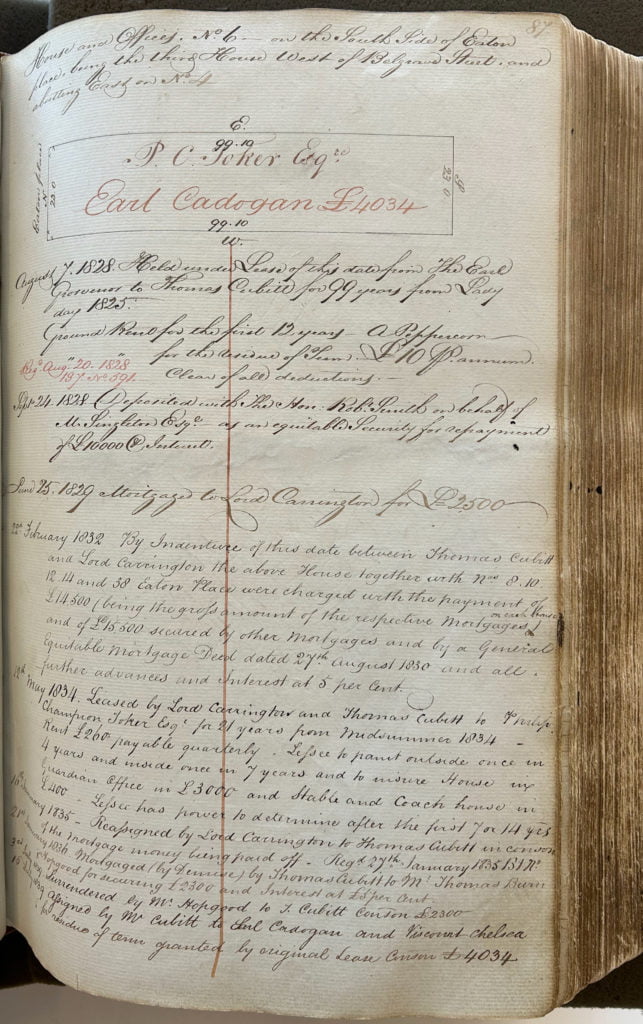 87
House and Offices. No. 6 — on the South Side of Eaton
place, being the third House West of Belgrave Street, and
abutting East on No. 4
E.
99.10
P. C. Toker Esqre
Earl Cadogan £4034
99.10
W.
Eaton place
N
23.0
23.0
August 7. 1828. Held under Lease of this date from The Earl
Grosvenor to Thomas Cubitt for 99 years from Lady
day 1825.
Ground Rent for the first 12 years — A Peppercorn
for the residue of Term — £10 Pr. annum.
Clear of all deductions. —
Regd. Augt. 20. 1828
B7. No. 591.
Sept. 24. 1828. Deposited with The Hon. Robt. Smith on behalf of
M. Singleton Esqre as an equitable Security for repayment
of £10000 & Interest.
June 25. 1829 Mortgaged to Lord Carrington for £2500
22d February 1832 By Indenture of this date between Thomas Cubitt
and Lord Carrington the above House together with Nos 8. 10.
12 14 and 38 Eaton Place were charged with the payment of
£14500 (being the gross amount of the respective Mortgages on each House)
and of £15500 secured by other Mortgages and by a General
Equitable Mortgage Deed dated 27th August 1830 and all
further advances and Interest at 5 per Cent.
May 1834. Leased by Lord Carrington and Thomas Cubitt to Philip
Champion Toker Esqr. for 21 years from Midsummer 1834 —
Rent £260 payable quarterly. Lessee to paint outside once in
4 years and inside once in 7 years and to insure House in
Guardian Office in £3000 and Stable and Coach house in
£400 — Lessee has power to determine after the first 7 or 14 yrs
January 1835 - Reassigned by Lord Carrington to Thomas Cubitt in conson
of the mortgage money being paid off — Regd 27th January 1835 B1 No
January 1836 Mortgaged (by Demise) by Thomas Cubitt to Mr Thomas Burn
Hopgood for securing £2300 and Interest at £5 per Cent
Surrendered by Mr. Hopgood to T. Cubitt Conson £2300
Assigned by Mr Cubitt to Earl Cadogan and Viscount Chelsea
for residue of term granted by original Lease Conson £4034